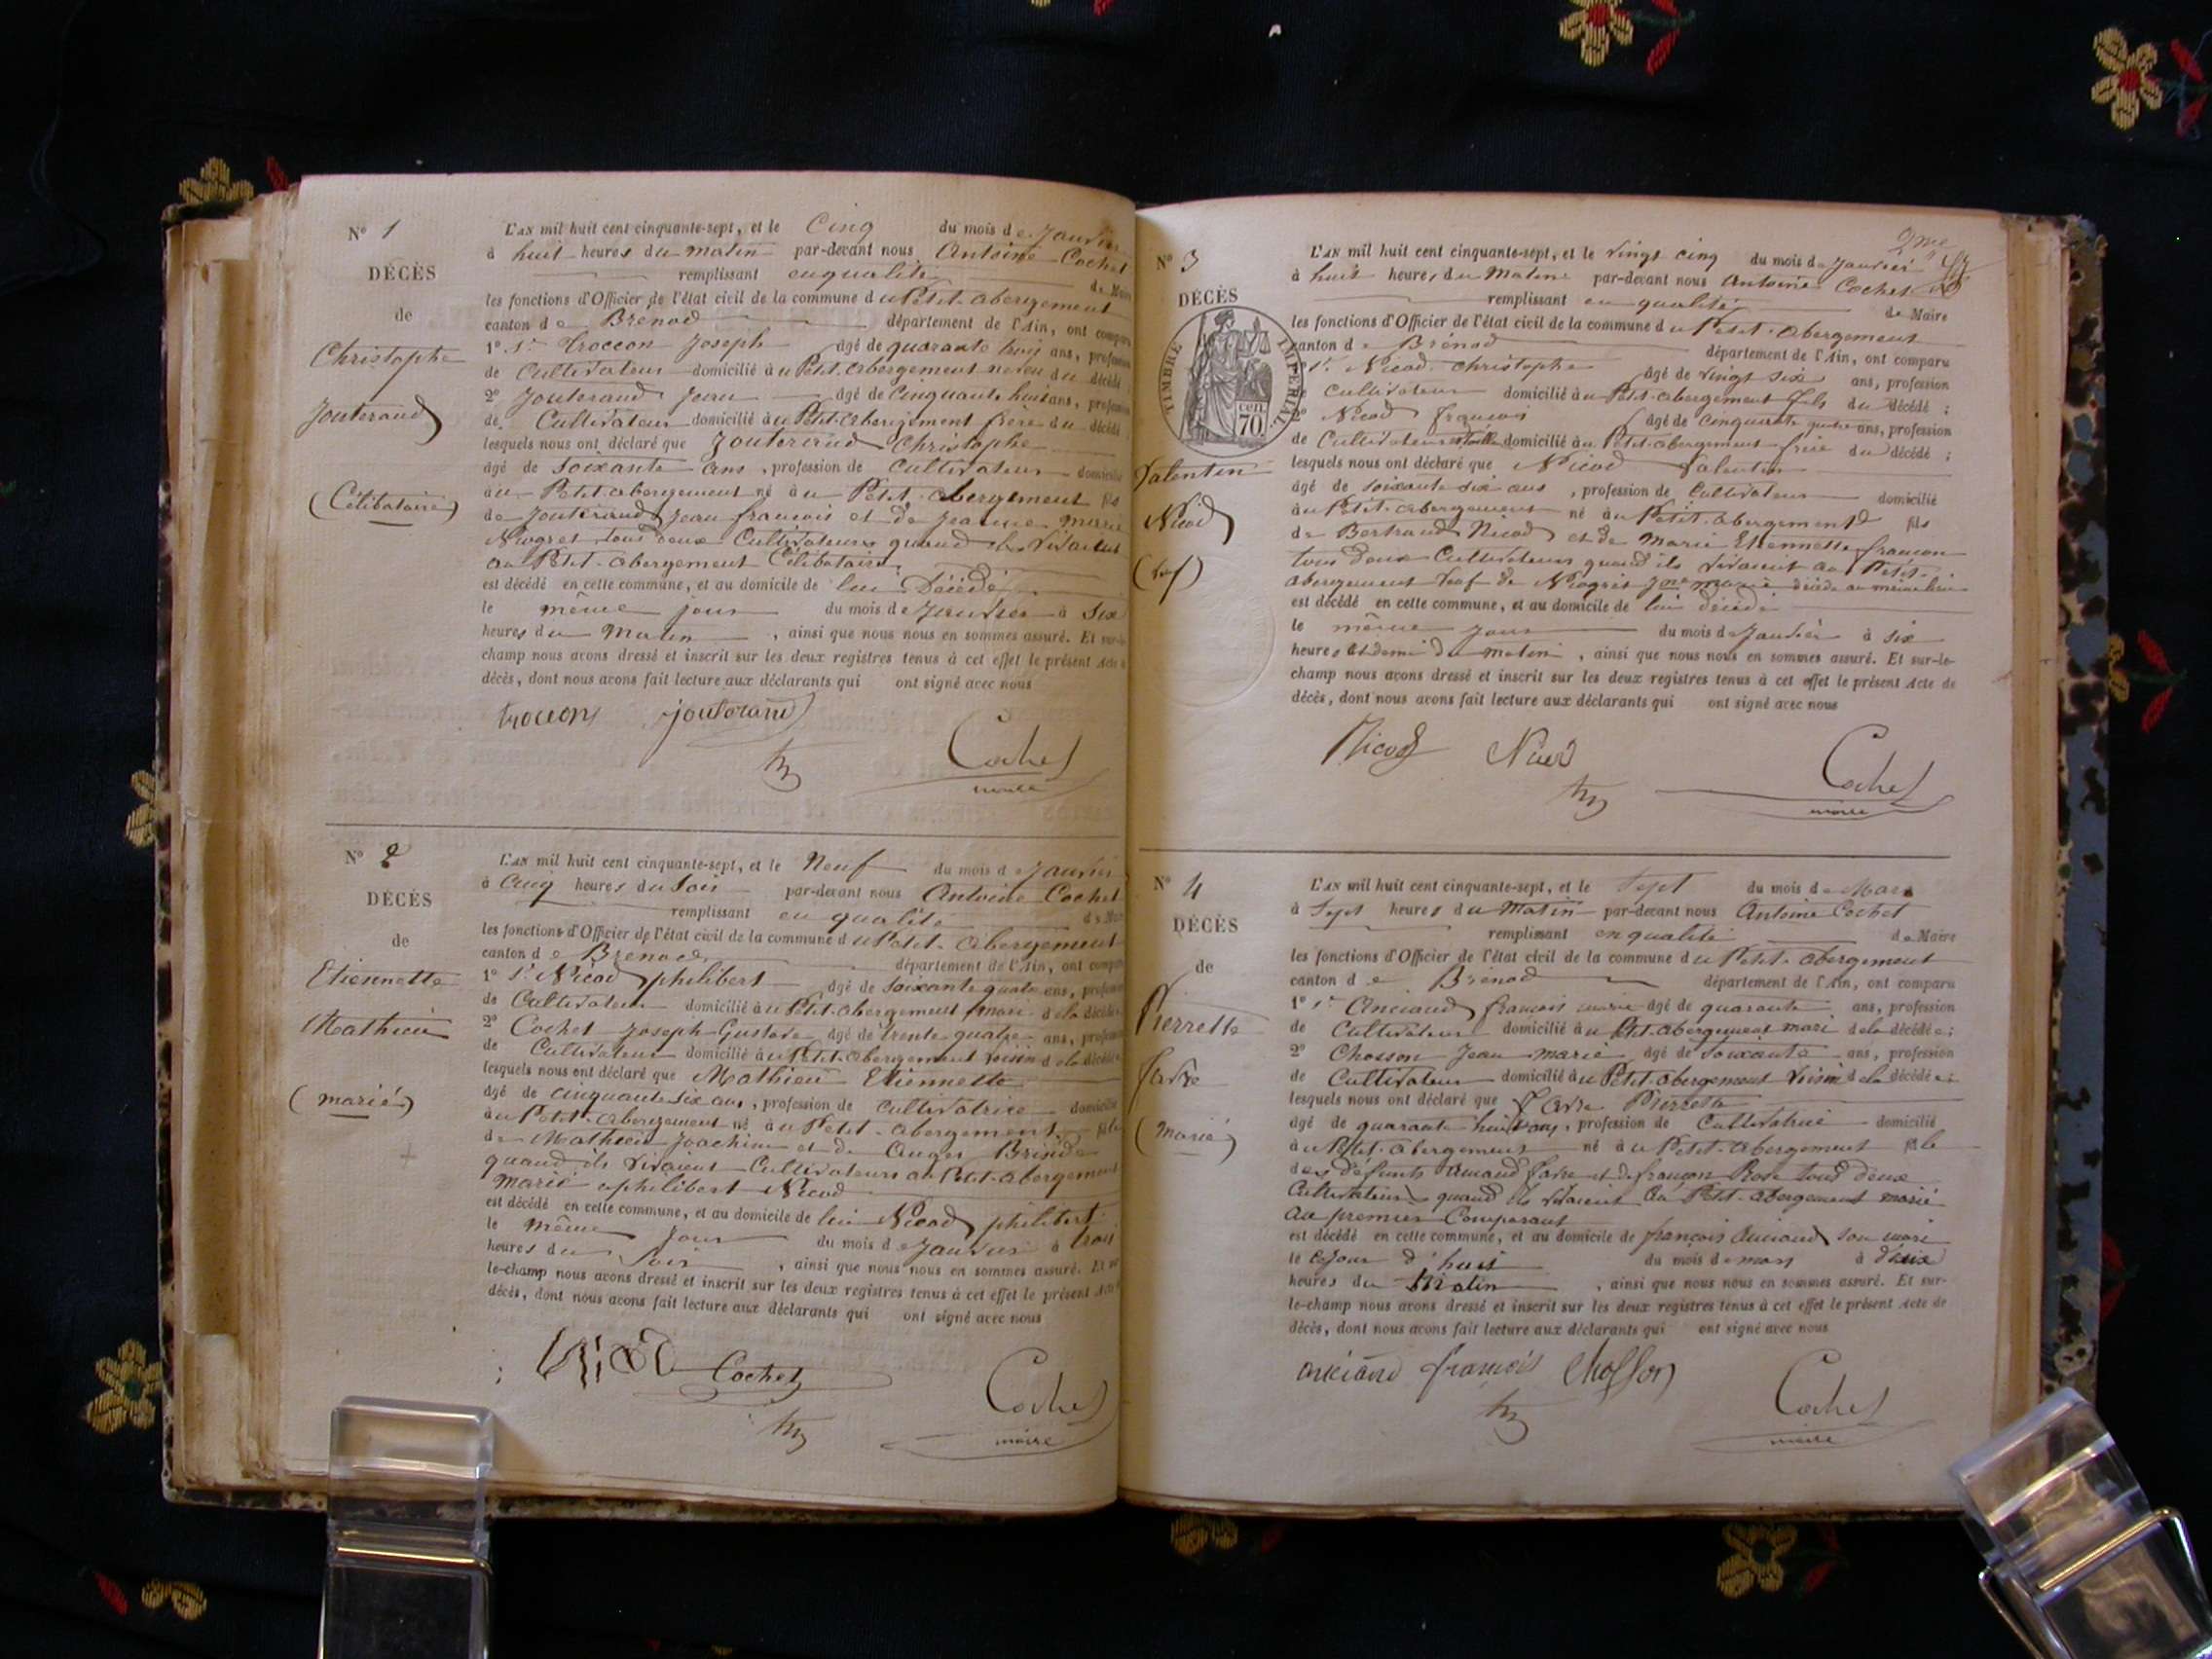 N° 1
DÉCÈS
de
Christophe
Jouterand
(Célibataire)
L'AN mil huit cent cinquante-sept, et le Cinq du mois de Janvier
à huit heures du matin par-devant nous Antoine Cochet
remplissant en qualité de Maire
les fonctions d'Officier de l'état civil de la commune du Petit-abergement
canton de Brénod département de l'Ain, ont comparu
1° Sr Troccon Joseph âgé de quarante trois ans, profession
de Cultivateur domicilié au Petit-abergement neveu du décédé
2° Jouterand Jean âgé de Cinquante huit ans, profession
de Cultivateur domicilié au Petit-abergement frère du décédé
lesquels nous ont déclaré que Jouterand Christophe
âgé de soixante ans, profession de Cultivateur domicilié
au Petit-abergement né au Petit-abergement fils
de Jouterand Jean françois et de Jeanne Marie
Niogret tous deux Cultivateurs quand ils vivaient
au Petit-abergement Célibataire
est décédé en cette commune, et au domicile de lui Décédé
le même jour du mois de Janvier à Six
heures du Matin, ainsi que nous nous en sommes assuré. Et sur-le-
champ nous avons dressé et inscrit sur les deux registres tenus à cet effet le présent Acte de
décès, dont nous avons fait lecture aux déclarants qui ont signé avec nous
troccon jouterand
Cochet
maire
N° 2
DÉCÈS
de
Etiennette
Mathieu
(marié)
L'AN mil huit cent cinquante-sept, et le Neuf du mois de Janvier
à Cinq heures du Soir par-devant nous Antoine Cochet
remplissant en qualité de Maire
les fonctions d'Officier de l'état civil de la commune du Petit-abergement
canton de Brenod département de l'Ain, ont comparu
1° Sr Nicod philibert âgé de soixante quatre ans, profession
de Cultivateur domicilié au Petit-abergement mari de la décédée
2° Cochet Joseph Gustave âgé de trente quatre ans, profession
de Cultivateur domicilié au Petit-abergement voisin de la décédée
lesquels nous ont déclaré que Mathieu Etiennette
âgé de cinquante six ans, profession de Cultivatrice domicilié
au Petit-abergement né au Petit-abergement fille
de Mathieu Joachim et de
quand ils vivaient Cultivateurs au Petit-abergement
marié a philibert Nicod
est décédé en cette commune, et au domicile de lui Nicod philibert
le même jour du mois de Janvier à trois
heures du Soir, ainsi que nous nous en sommes assuré. Et sur-
le-champ nous avons dressé et inscrit sur les deux registres tenus à cet effet le présent Acte de
décès, dont nous avons fait lecture aux déclarants qui ont signé avec nous
Nicod Cochet
Cochet
maire
2me
N° 3
DÉCÈS
TIMBRE IMPÉRIAL
cen.
70
Valentin
Nicod
(Veuf)
L'AN mil huit cent cinquante-sept, et le vingt cinq du mois de Janvier
à huit heures du Matin par-devant nous Antoine Cochet
remplissant en qualité de Maire
les fonctions d'Officier de l'état civil de la commune du Petit-abergement
canton de Brénod département de l'Ain, ont comparu
1° Sr Nicod christophe âgé de vingt six ans, profession
de cultivateur domicilié au Petit-abergement fils du décédé;
2° Nicod françois âgé de cinquante quatre ans, profession
de Cultivateur domicilié au Petit-abergement frère du décédé;
lesquels nous ont déclaré que Nicod Valentin
âgé de soixante six ans, profession de Cultivateur domicilié
au Petit-abergement né au Petit-abergement fils
de Bertrand Nicod et de Marie Etiennette françon
tous deux Cultivateurs quand ils vivaient au Petit-
abergement Veuf de Niogret Jne marie décédé au même lieu
est décédé en cette commune, et au domicile de lui décédé
le même jour du mois de Janvier à six
heures et demi du matin, ainsi que nous nous en sommes assuré. Et sur-le-
champ nous avons dressé et inscrit sur les deux registres tenus à cet effet le présent Acte de
décès, dont nous avons fait lecture aux déclarants qui ont signé avec nous
Nicod Nicod
Cochet
maire
N° 4
DÉCÈS
de
Pierrette
favre
(Marié)
L'AN mil huit cent cinquante-sept, et le Sept du mois de Mars
à Sept heures du Matin par-devant nous Antoine Cochet
remplissant en qualité de Maire
les fonctions d'Officier de l'état civil de la commune du Petit-abergement
canton de Brénod département de l'Ain, ont comparu
1° Sr Anciand françois marie âgé de quarante ans, profession
de Cultivateur domicilié au Petit-abergement mari de la décédée;
2° Chosson Jean marie âgé de soixante ans, profession
de Cultivateur domicilié au Petit-abergement Voisin de la décédée;
lesquels nous ont déclaré que favre Pierrette
âgé de quarante huit ans, profession de Cultivatrice domicilié
au Petit-abergement né au Petit-abergement fille
des défunts Amand favre et de françon Rose tous deux
Cultivateurs quand ils vivaient au Petit-abergement marié
au premier Comparant
est décédé en cette commune, et au domicile de françois Anciand son mari
le cejour d'hui du mois de mars à deux
heures du Matin, ainsi que nous nous en sommes assuré. Et sur-
le-champ nous avons dressé et inscrit sur les deux registres tenus à cet effet le présent Acte de
décès, dont nous avons fait lecture aux déclarants qui ont signé avec nous
anciand françois Chosson
Cochet
maire